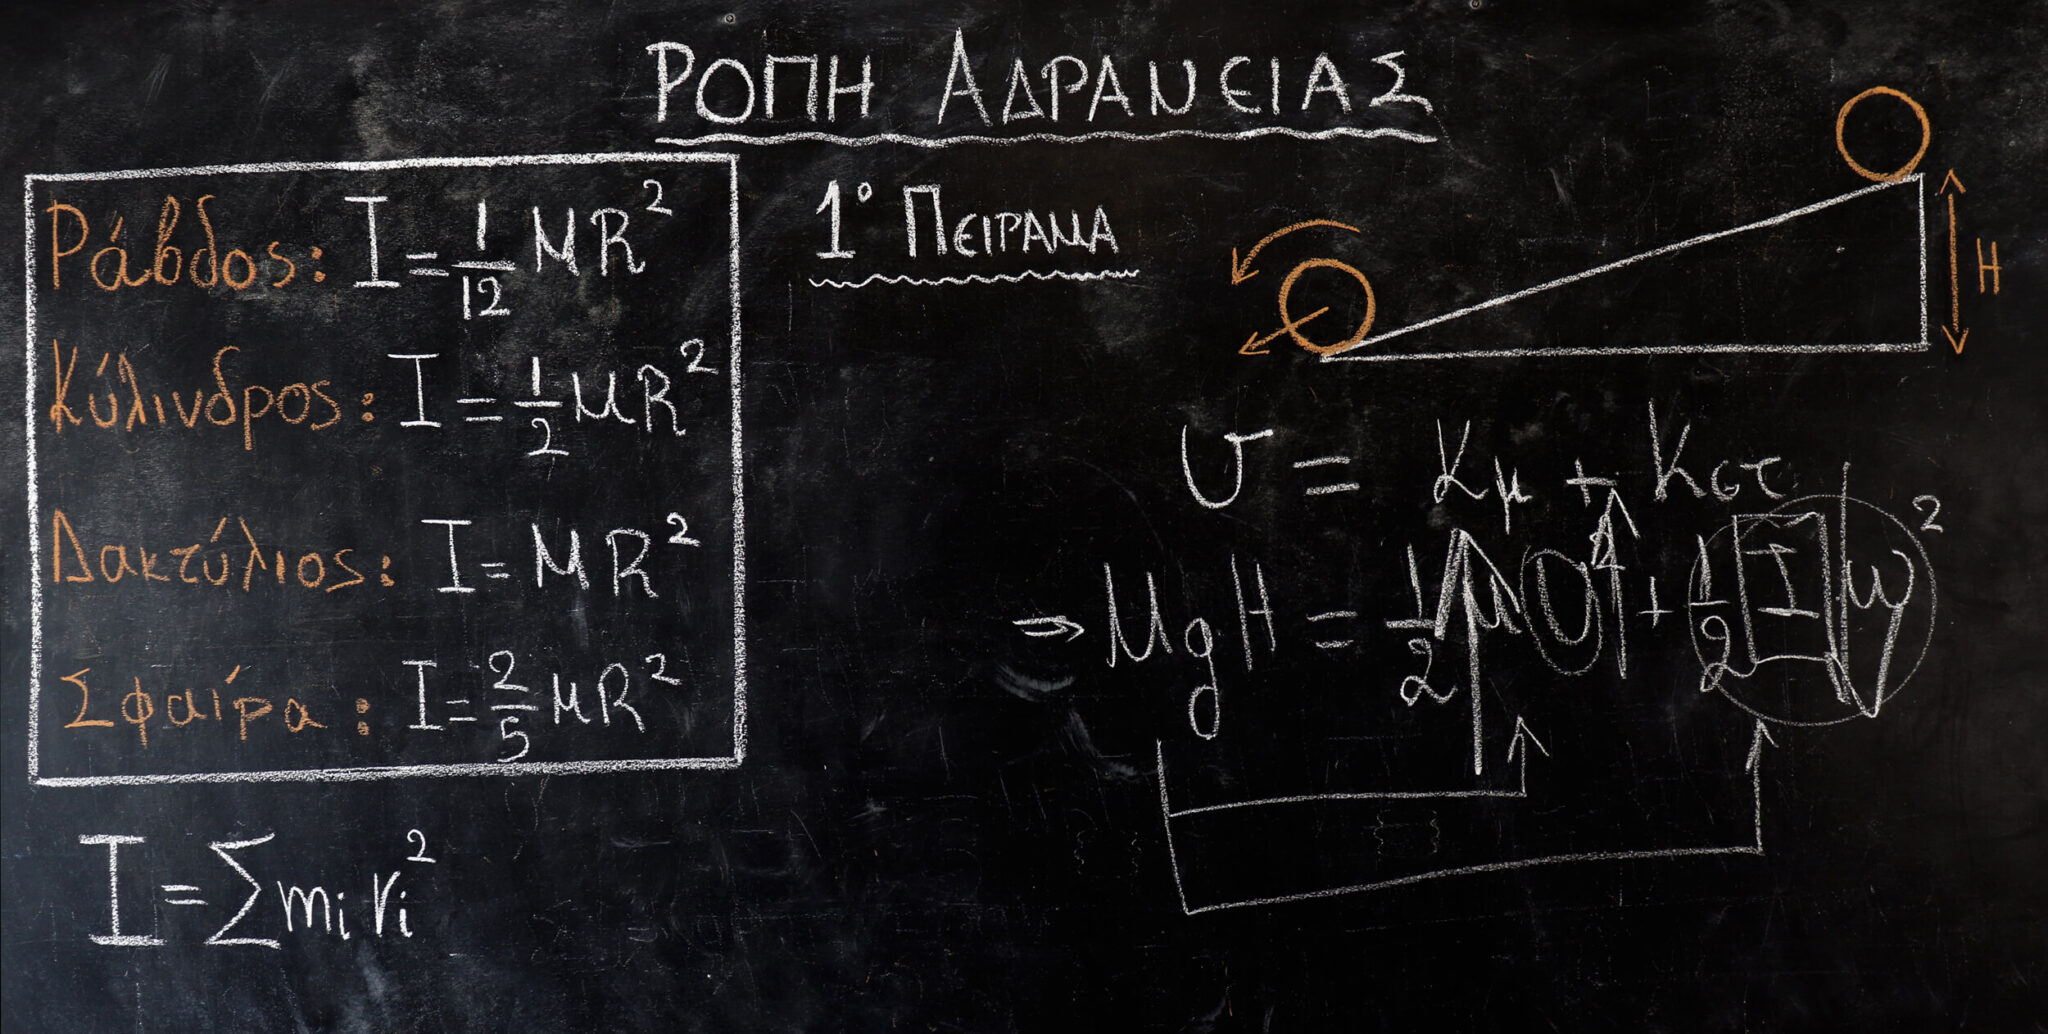 ΡΟΠΗ ΑΔΡΑΝΕΙΑΣ
Ράβδος: I = 1/12 MR²
Κύλινδρος: I = 1/2 MR²
Δακτύλιος: I = MR²
Σφαίρα: I = 2/5 MR²
I = Σ mᵢ rᵢ²
1° ΠΕΙΡΑΜΑ
H
U = Kμ + Kστ
⇒ MgH = 1/2 M υ² + 1/2 I ω²